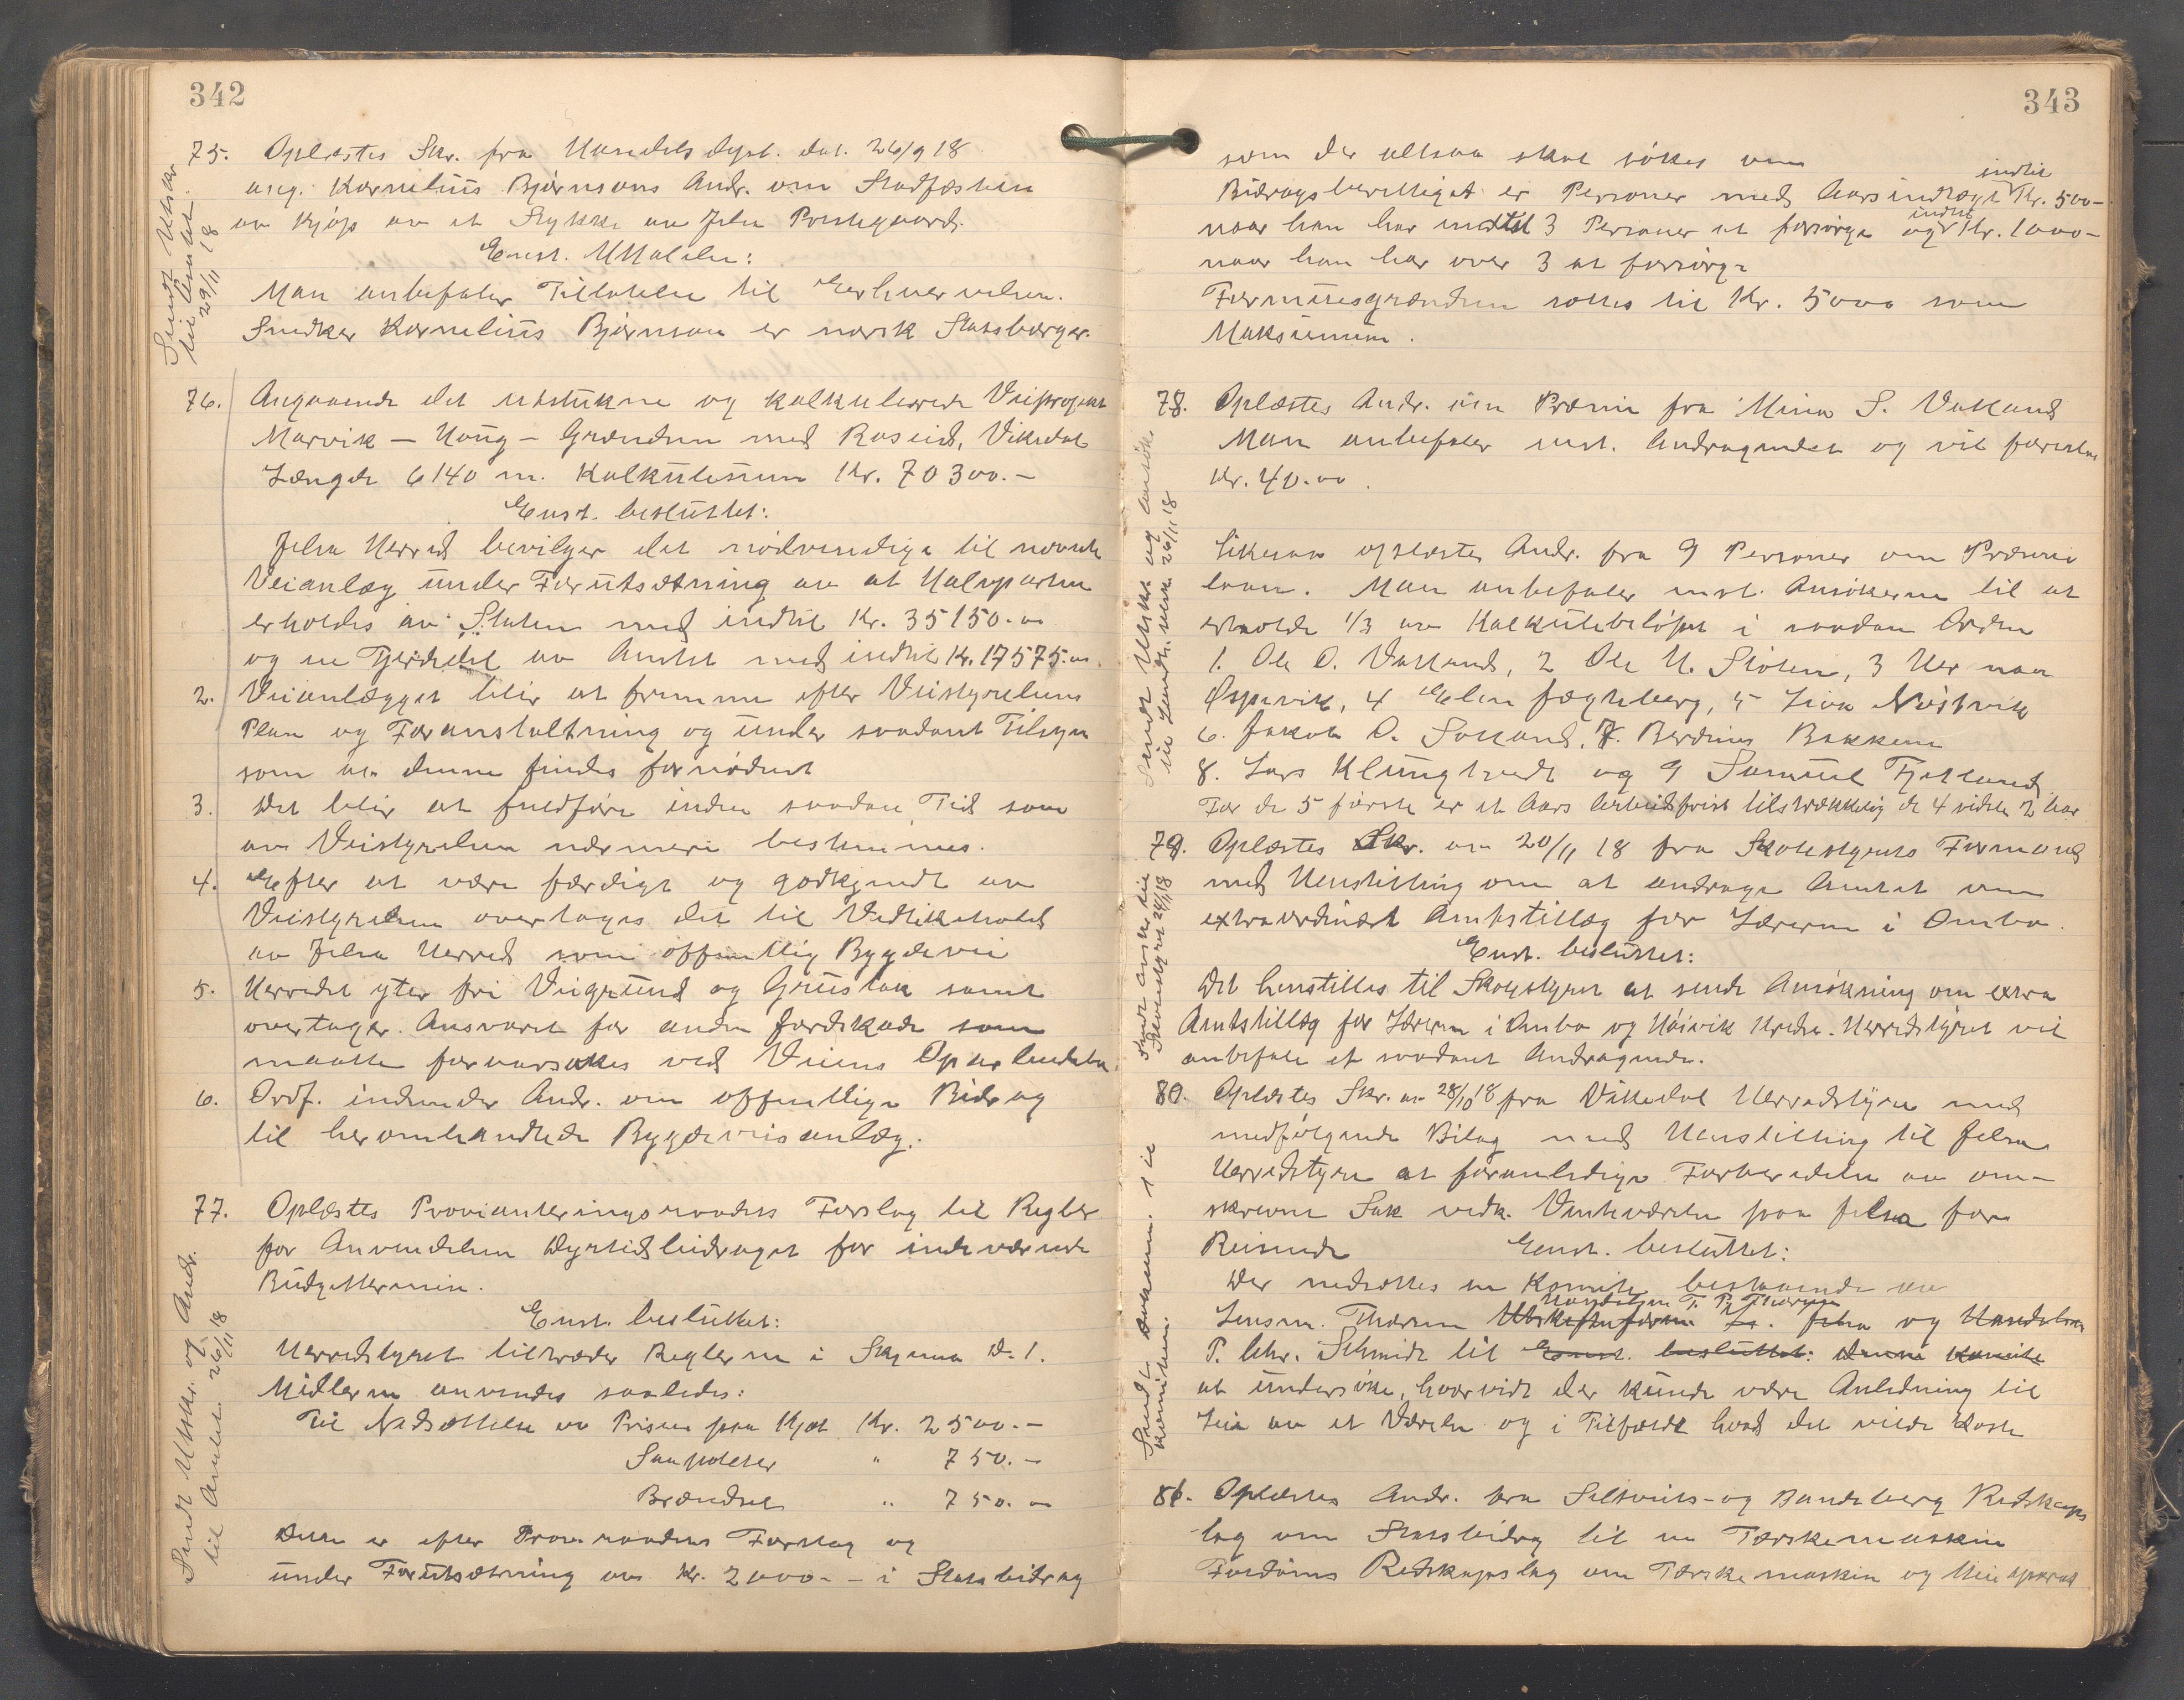 342
75. Oplæstes Skr. fra Handels dept. dat. 26/9 18
ang. Kornelius Bjørnsons Andr. om Stadfæstelse
av Kjøp av et Stykke av Jelsa Prestegaard.
Enst. Uttalelse:
Man anbefaler Tillatelse til Erhvervelsen.
Snedker Kornelius Bjørnson er norsk Statsborger.
Sendt Utskr.
til Amtet
29/11 18
76. Angaaende det utstukne og kalkulerede Veiprojekt
Marvik – Haug – Grændsen med Røseid, Vikedal
Længde 6140 m. Kalkulesum Kr. 70300.–
Enst. besluttet:
Jelsa Herred bevilger det nødvendige til nævnte
Veianlæg under Forutsætning av at Halvparten
erholdes av Staten med indtil Kr. 35150.00
og en Fjerdedel av Amtet med indtil Kr. 17575.00.
2. Veianlægget blir at fremme efter Veistyrelsens
Plan og Foranstaltning og under saadant Tilsyn
som av denne findes fornødent
3. Det blir at fuldføre inden saadan Tid som
av Veistyrelsen nærmere bestemmes.
4. Efter at være færdigt og godkjendt av
Veistyrelsen overtages det til Vedlikehold
av Jelsa Herred som offentlig Bygdevei
5. Herredet yter fri Veigrund og Grustak samt
overtager Ansvaret for anden Jordskade som
maatte foraarsakes ved Veiens Oparbeidelse.
6. Ordf. indsender Andr. om offentlige Bidrag
til heromhandlede Bygdeveisanlæg.
77. Oplæstes Provianteringsraadets Forslag til Regler
for Anvendelsen Dyrtidsbidraget for indeværende
Budgettermin.
Enst. besluttet:
Herredstyret tiltræder Reglerne i Skjema D. 1.
Midlerne anvendes saaledes:
Til Nedsættelse av Prisen paa Kjøt Kr. 2500.–
Saapoteter " 750.–
Brændsel " 750.00
Dette er efter Prov. raadets Forslag og
under Forutsætning av Kr. 2000.– i Statsbidrag
Sendt Utskr. og Andr.
til Amtet 26/11 18
343
som der altsaa skal søkes om
Bidragsberettiget er Personer med Aarsindtægt indtil Kr. 500–
naar han har indtil 3 Personer at forsørge og indtil Kr. 1000–
naar han har over 3 at forsørge
Formuesgrændsen sættes til Kr. 5000 som
Maksimum.
78. Oplæstes Andr. om Præmie fra Mina S. Vatland
Man anbefaler enst. Andragendet og vil foreslaa
Kr. 40.00.
Likesaa oplæstes Andr. fra 9 Personer om Præmie
laan. Man anbefaler enst. Ansøkerne til at
erholde 1/3 av Kalkulebeløpet i saadan Orden
1. Ole O. Vatland, 2 Ole H. Støten, 3 Her man
Espevik, 4 Elen Fægteberg, 5 Lisa Nøstvik
6. Jakob O. Søtland, 7. Berdines Bakken
8. Lars Klungtvedt og 9 Samuel Tjetland
For de 5 første er et Aars Arbeidsfrist tilstrækkelig de 4 sidste 2 Aar
Sendt Utskr. og ansøk.
til Landbr. selsk. 26/11 18
79. Oplæstes Skr. av 20/11 18 fra Skolestyrets Formand
med Henstilling om at andrage Amtet om
extraordinært Amtstillæg for Lærerne i Ombo.
Enst. besluttet:
Det henstilles til Skolestyret at sende Ansøkning om extra
Amtstillæg for Lærerne i Ombo og Høivik Kreds. Herredstyret vil
anbefale et saadant Andragende.
80. Oplæstes Skr. av 28/10 18 fra Vikedal Herredstyre med
medfølgende Bilag med Henstilling til Jelsa
Herredstyre at foranledige Forberedelse av om-
skrevne Sak vedk. Venteværelse paa Jelsa for
Reisende Enst. besluttet:
Der nedsættes en Komite bestaaende av
Lensm. Thorsen Handelsm. T. P. og Handelsm
P. Chr. Schmidt til Enst. besluttet: denne Komite
at undersøke, hvorvidt der kunde være Anledning til
Leie av et Værelse og i Tilfælde hvad det vilde koste
Sendt til
Komiteen.
81. Oplæstes Andr. fra og Bandeberg Redskaps
lag om Statsbidrag til en Tærskemaskin
Redskapslag om Tærskemaskin og